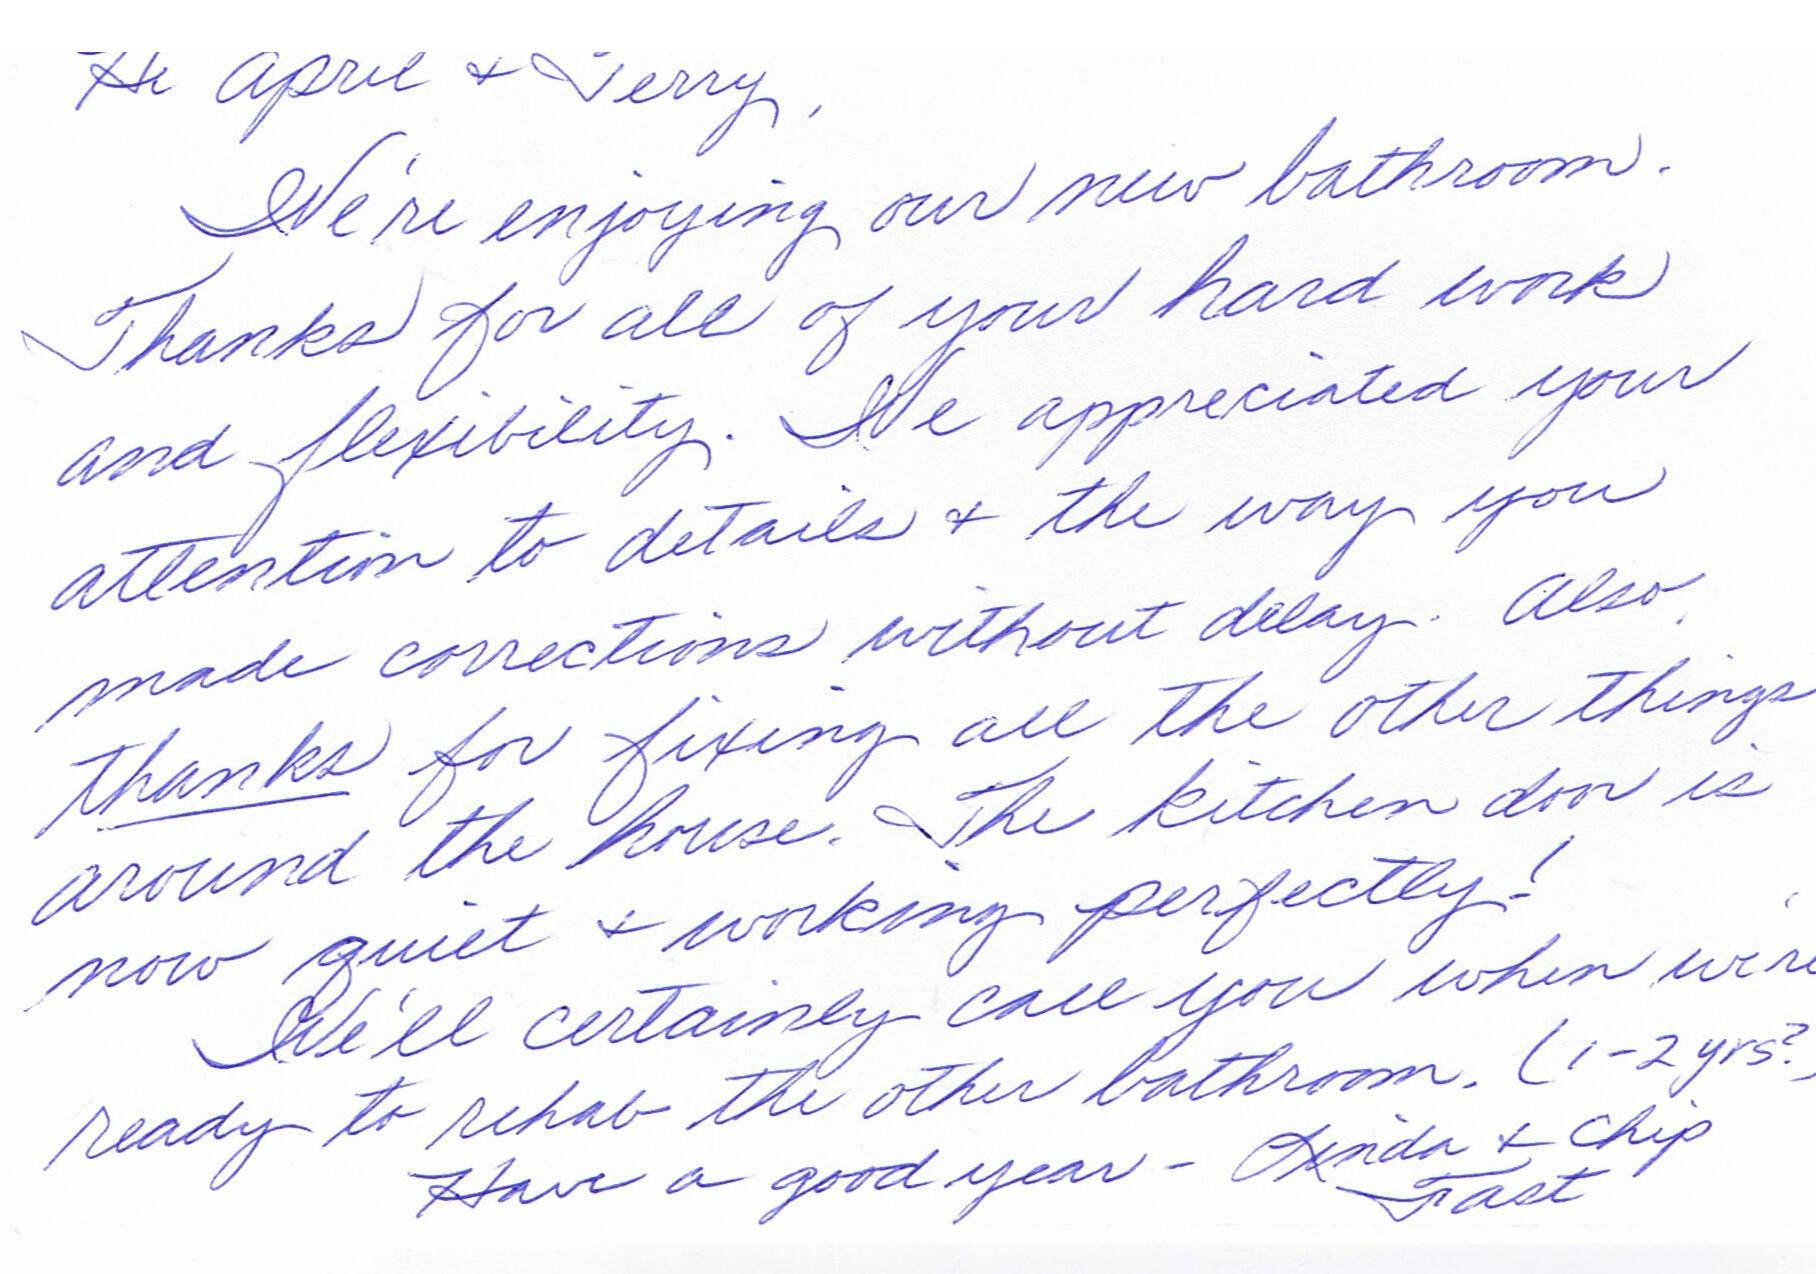 Hi April & Terry,
We're enjoying our new bathroom.
Thanks for all of your hard work
and flexibility. We appreciated your
attention to details & the way you
made corrections without delay. Also,
thanks for fixing all the other things
around the house. The kitchen door is
now quiet & working perfectly!
We'll certainly call you when we're
ready to rehab the other bathroom. (1-2 yrs?)
Have a good year - Linda & Chip
Fast